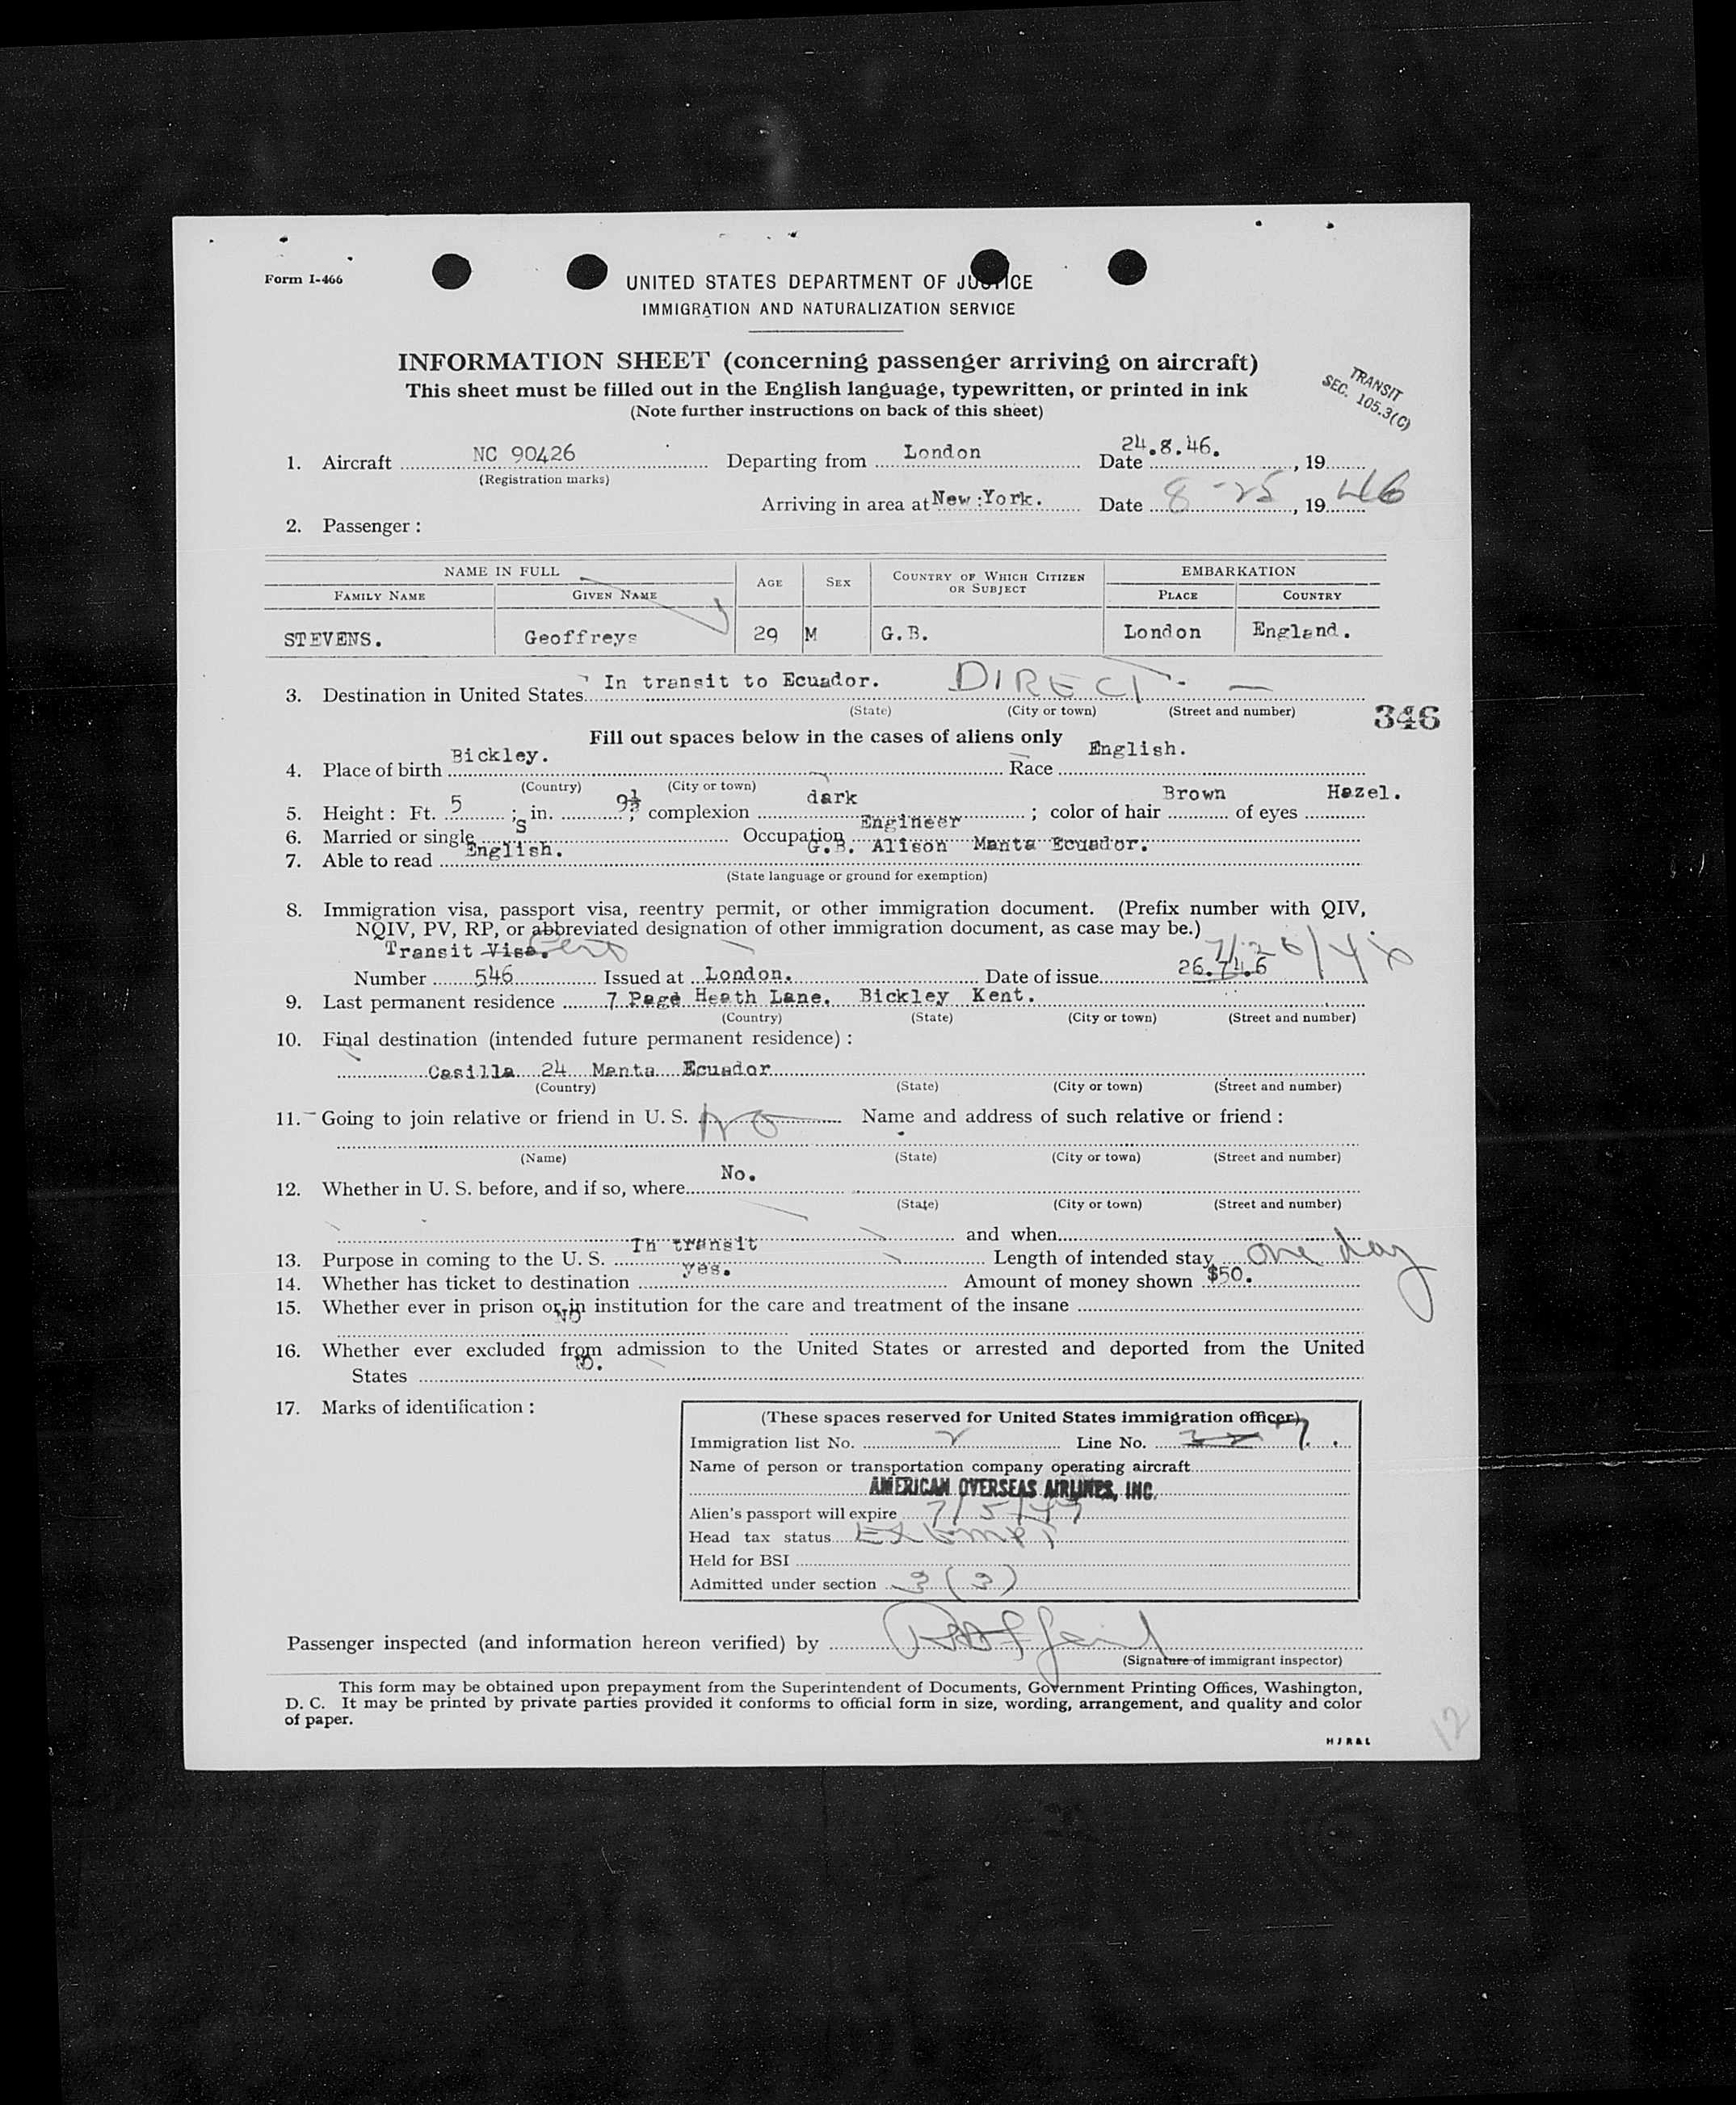 Form I-466
UNITED STATES DEPARTMENT OF JUSTICE
IMMIGRATION AND NATURALIZATION SERVICE
INFORMATION SHEET (concerning passenger arriving on aircraft)
This sheet must be filled out in the English language, typewritten, or printed in ink
(Note further instructions on back of this sheet)
TRANSIT
SEC. 105.3(C)
1. Aircraft NC 90426 Departing from London Date 24.8.46. , 19
(Registration marks)
Arriving in area at New York. Date 8-25, 1946
2. Passenger :
NAME IN FULL
FAMILY NAME GIVEN NAME AGE SEX COUNTRY OF WHICH CITIZEN OR SUBJECT EMBARKATION
PLACE COUNTRY
STEVENS. Geoffreys 29 M G.B. London England.
3. Destination in United States In transit to Ecuador. DIRECT. —
(State) (City or town) (Street and number)
346
Fill out spaces below in the cases of aliens only
4. Place of birth Bickley. Race English.
(Country) (City or town)
5. Height : Ft. 5 ; in. 9½ ; complexion dark ; color of hair Brown of eyes Hazel.
6. Married or single S Occupation Engineer
7. Able to read English. G.B. Alison Manta Ecuador.
(State language or ground for exemption)
8. Immigration visa, passport visa, reentry permit, or other immigration document. (Prefix number with QIV,
NQIV, PV, RP, or abbreviated designation of other immigration document, as case may be.)
Transit Visa. Cert 7/26/46
Number 546 Issued at London. Date of issue 26.7.46
9. Last permanent residence 7 Page Heath Lane. Bickley Kent.
(Country) (State) (City or town) (Street and number)
10. Final destination (intended future permanent residence) :
Casilla 24 Manta Ecuador
(Country) (State) (City or town) (Street and number)
11. Going to join relative or friend in U. S. no Name and address of such relative or friend :
(Name) (State) (City or town) (Street and number)
12. Whether in U. S. before, and if so, where No.
(State) (City or town) (Street and number)
and when
13. Purpose in coming to the U. S. In transit Length of intended stay one day
14. Whether has ticket to destination yes. Amount of money shown $50.
15. Whether ever in prison or in institution for the care and treatment of the insane
NO
16. Whether ever excluded from admission to the United States or arrested and deported from the United
States no.
17. Marks of identification :
(These spaces reserved for United States immigration officer)
Immigration list No. 2 Line No. 7
Name of person or transportation company operating aircraft
AMERICAN OVERSEAS AIRLINES, INC.
Alien's passport will expire 7/5/47
Head tax status Exempt
Held for BSI
Admitted under section 3 (3)
Passenger inspected (and information hereon verified) by
(Signature of immigrant inspector)
This form may be obtained upon prepayment from the Superintendent of Documents, Government Printing Offices, Washington,
D. C. It may be printed by private parties provided it conforms to official form in size, wording, arrangement, and quality and color
of paper.
HJR&L
12